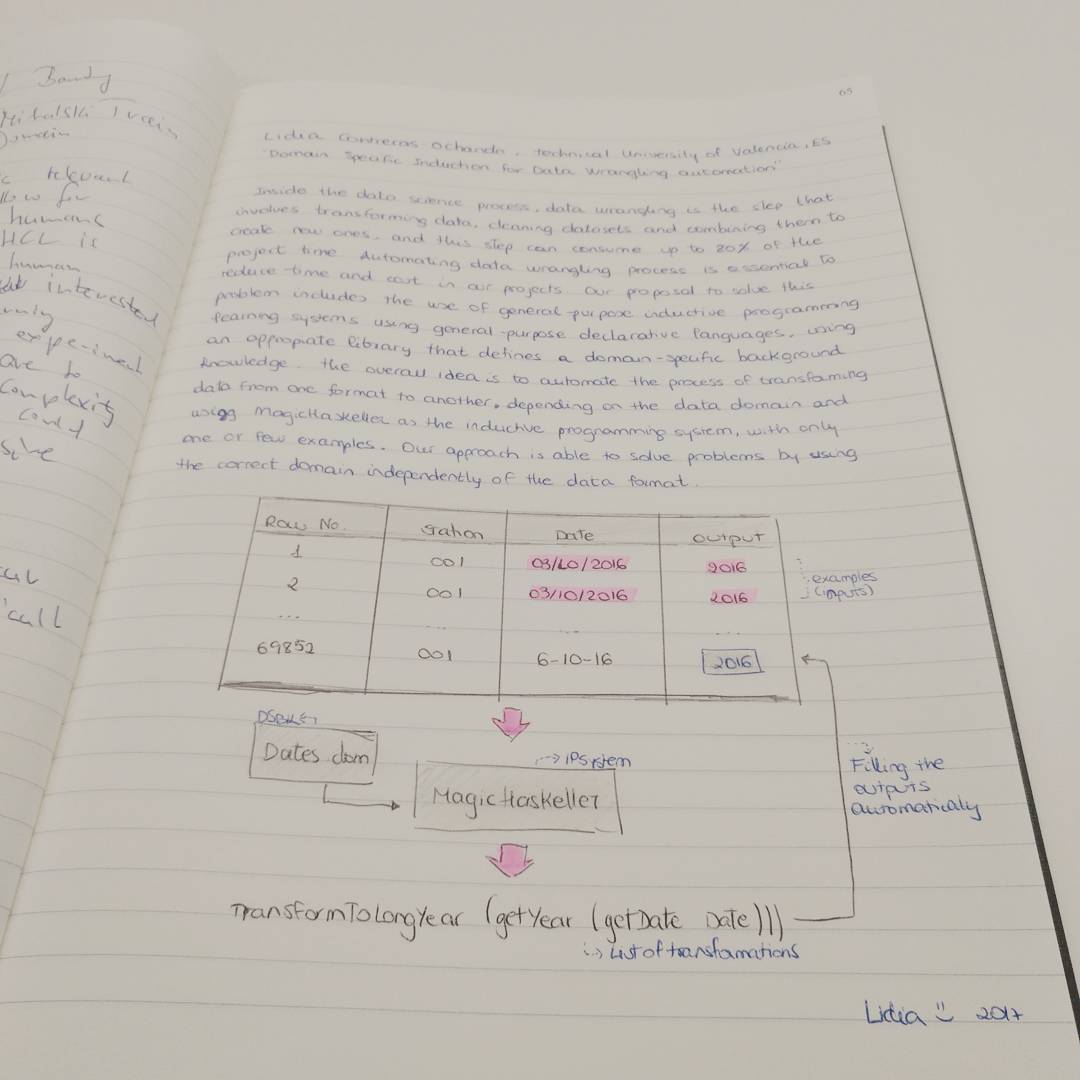 Bandy
Domain
relevant
humans
HCL is
human
interested
to
complexity
could
call
65
Lidia Contreras Ochando, Technical University of Valencia, ES
"Domain Specific Induction for Data Wrangling automation"
Inside the data science process, data wrangling is the step that
involves transforming data, cleaning datasets and combining them to
create new ones, and this step can consume up to 80% of the
project time. Automating data wrangling process is essential to
reduce time and cost in our projects. Our proposal to solve this
problem includes the use of general-purpose inductive programming
learning systems using general-purpose declarative languages, using
an appropiate library that defines a domain-specific background
knowledge. The overall idea is to automate the process of transforming
data from one format to another, depending on the data domain and
using MagicHaskeller as the inductive programming system, with only
one or few examples. Our approach is able to solve problems by using
the correct domain independently of the data format.
Row No. Station Date Output
1 001 03/10/2016 2016
2 001 03/10/2016 2016
... ... ... ...
69852 001 6-10-16 2016
examples
(inputs)
Dates dom
IPSystem
MagicHaskeller
Filling the
outputs
automatically
TransformToLongYear (getYear (getDate Date)))
List of transformations
Lidia :) 2017